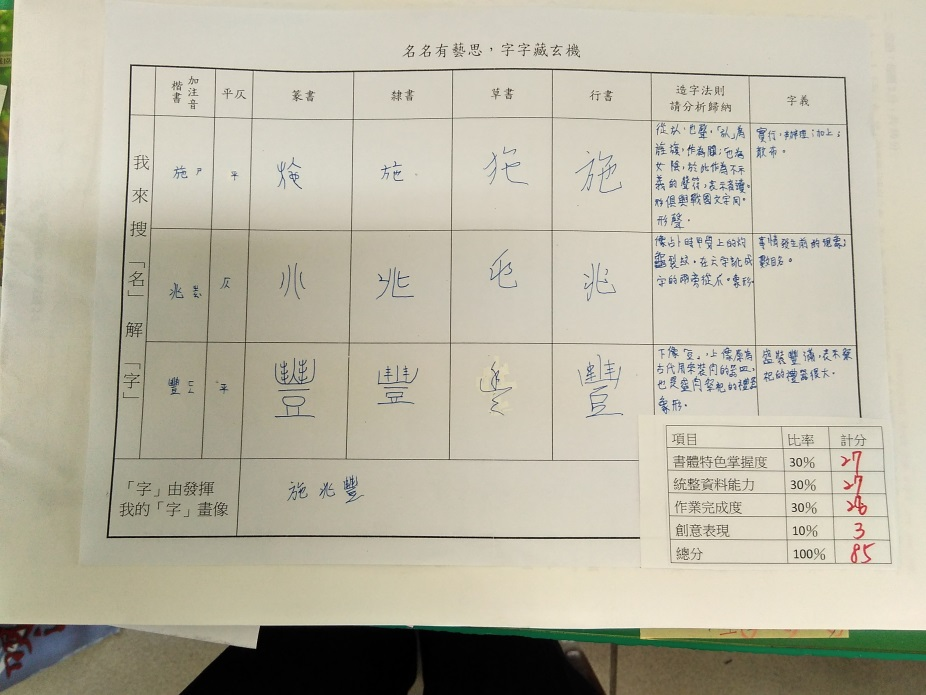 名名有藝思，字字藏玄機
加注音
楷書
平仄
篆書
隸書
草書
行書
造字法則
請分析歸納
字義
我來搜「名」解「字」
施 ㄕ
平
施
施
施
施
從㫃，也聲，「㫃」為
旌旗，作為
女陰，於此作為不示
義的聲符，表示音讀。
俱與戰國文字同。
形聲。
實行，辦理；加上；
散布。
兆
仄
兆
兆
兆
兆
像占卜時甲骨上的灼
龜裂紋，在六字
字的兩旁從爪。象形
事情發生前的現象；
數目名。
豐
平
豐
豐
豐
豐
下像「豆」，上像原為
古代用來裝肉的器皿，
也是盛肉祭祀的禮器
象形。
盛裝豐滿，表示祭
祀的禮器很大。
「字」由發揮
我的「字」畫像
施兆豐
項目 比率 計分
書體特色掌握度 30% 27
統整資料能力 30% 27
作業完成度 30% 28
創意表現 10% 3
總分 100% 85